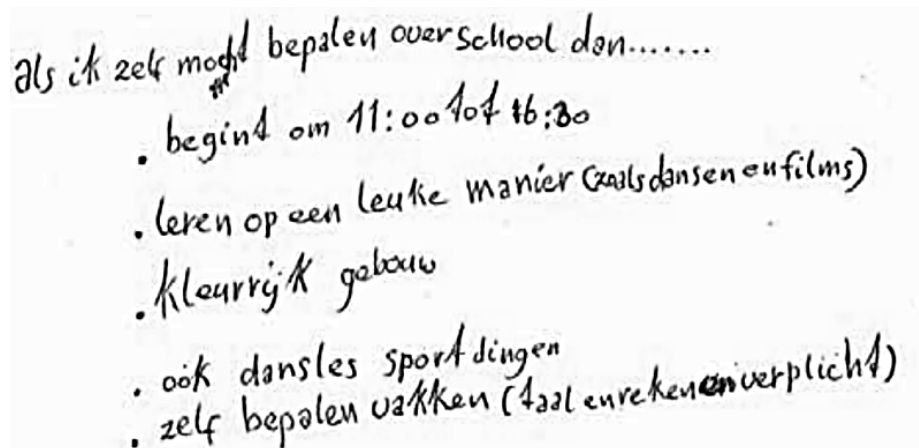 als ik zelf mocht bepalen over school dan.......
. begint om 11:00 tot 16:30
. leren op een leuke manier (zoals dansen en films)
. kleurrijk gebouw
. ook dansles sport dingen
. zelf bepalen vakken (taal en rekenen verplicht)